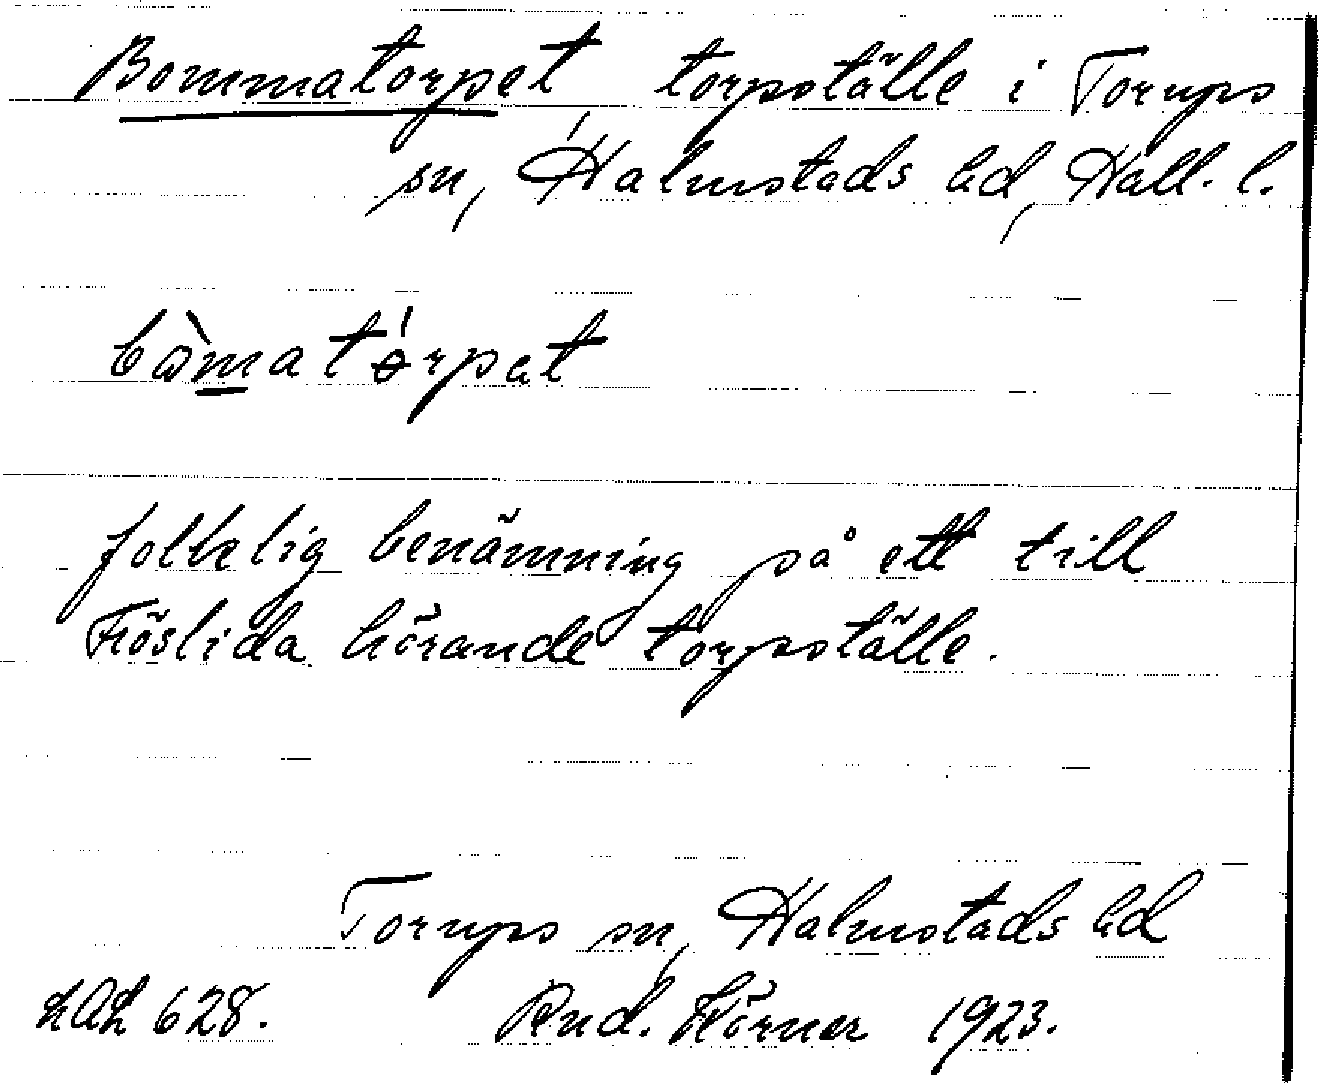 Bommatorpet torpställe i Torups
sn, Halmstads hd, Hall. l.
bòmatórpet
folkelig benämning på ett till
Fröslida hörande torpställe.
Torups sn, Halmstads hd
LAL 628. Rud. Körner 1923.